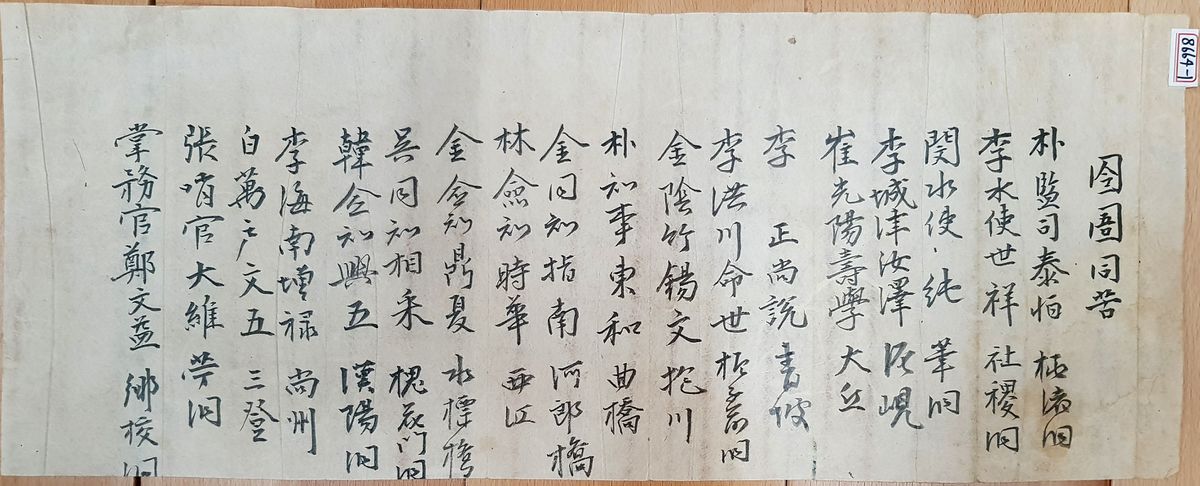 8664-1
囹圄同苦
朴監司泰恒 洞
李水使世祥 社稷洞
閔水使 純 筆洞
李城津汝澤 泥峴
崔光陽壽學 大丘
李 正尚說 青坡
李洪川命世 洞
金陰竹錫文 抱川
朴知事東和 曲橋
金同知指南 河郎橋
林僉知時華 西江
金僉知鼎夏 水標橋
吳同知相采 槐花門洞
韓僉知興五 漢陽洞
李海南增祿 尚州
白萬戶文五 三登
張哨官大維 苧洞
掌務官鄭文益 鄉校洞